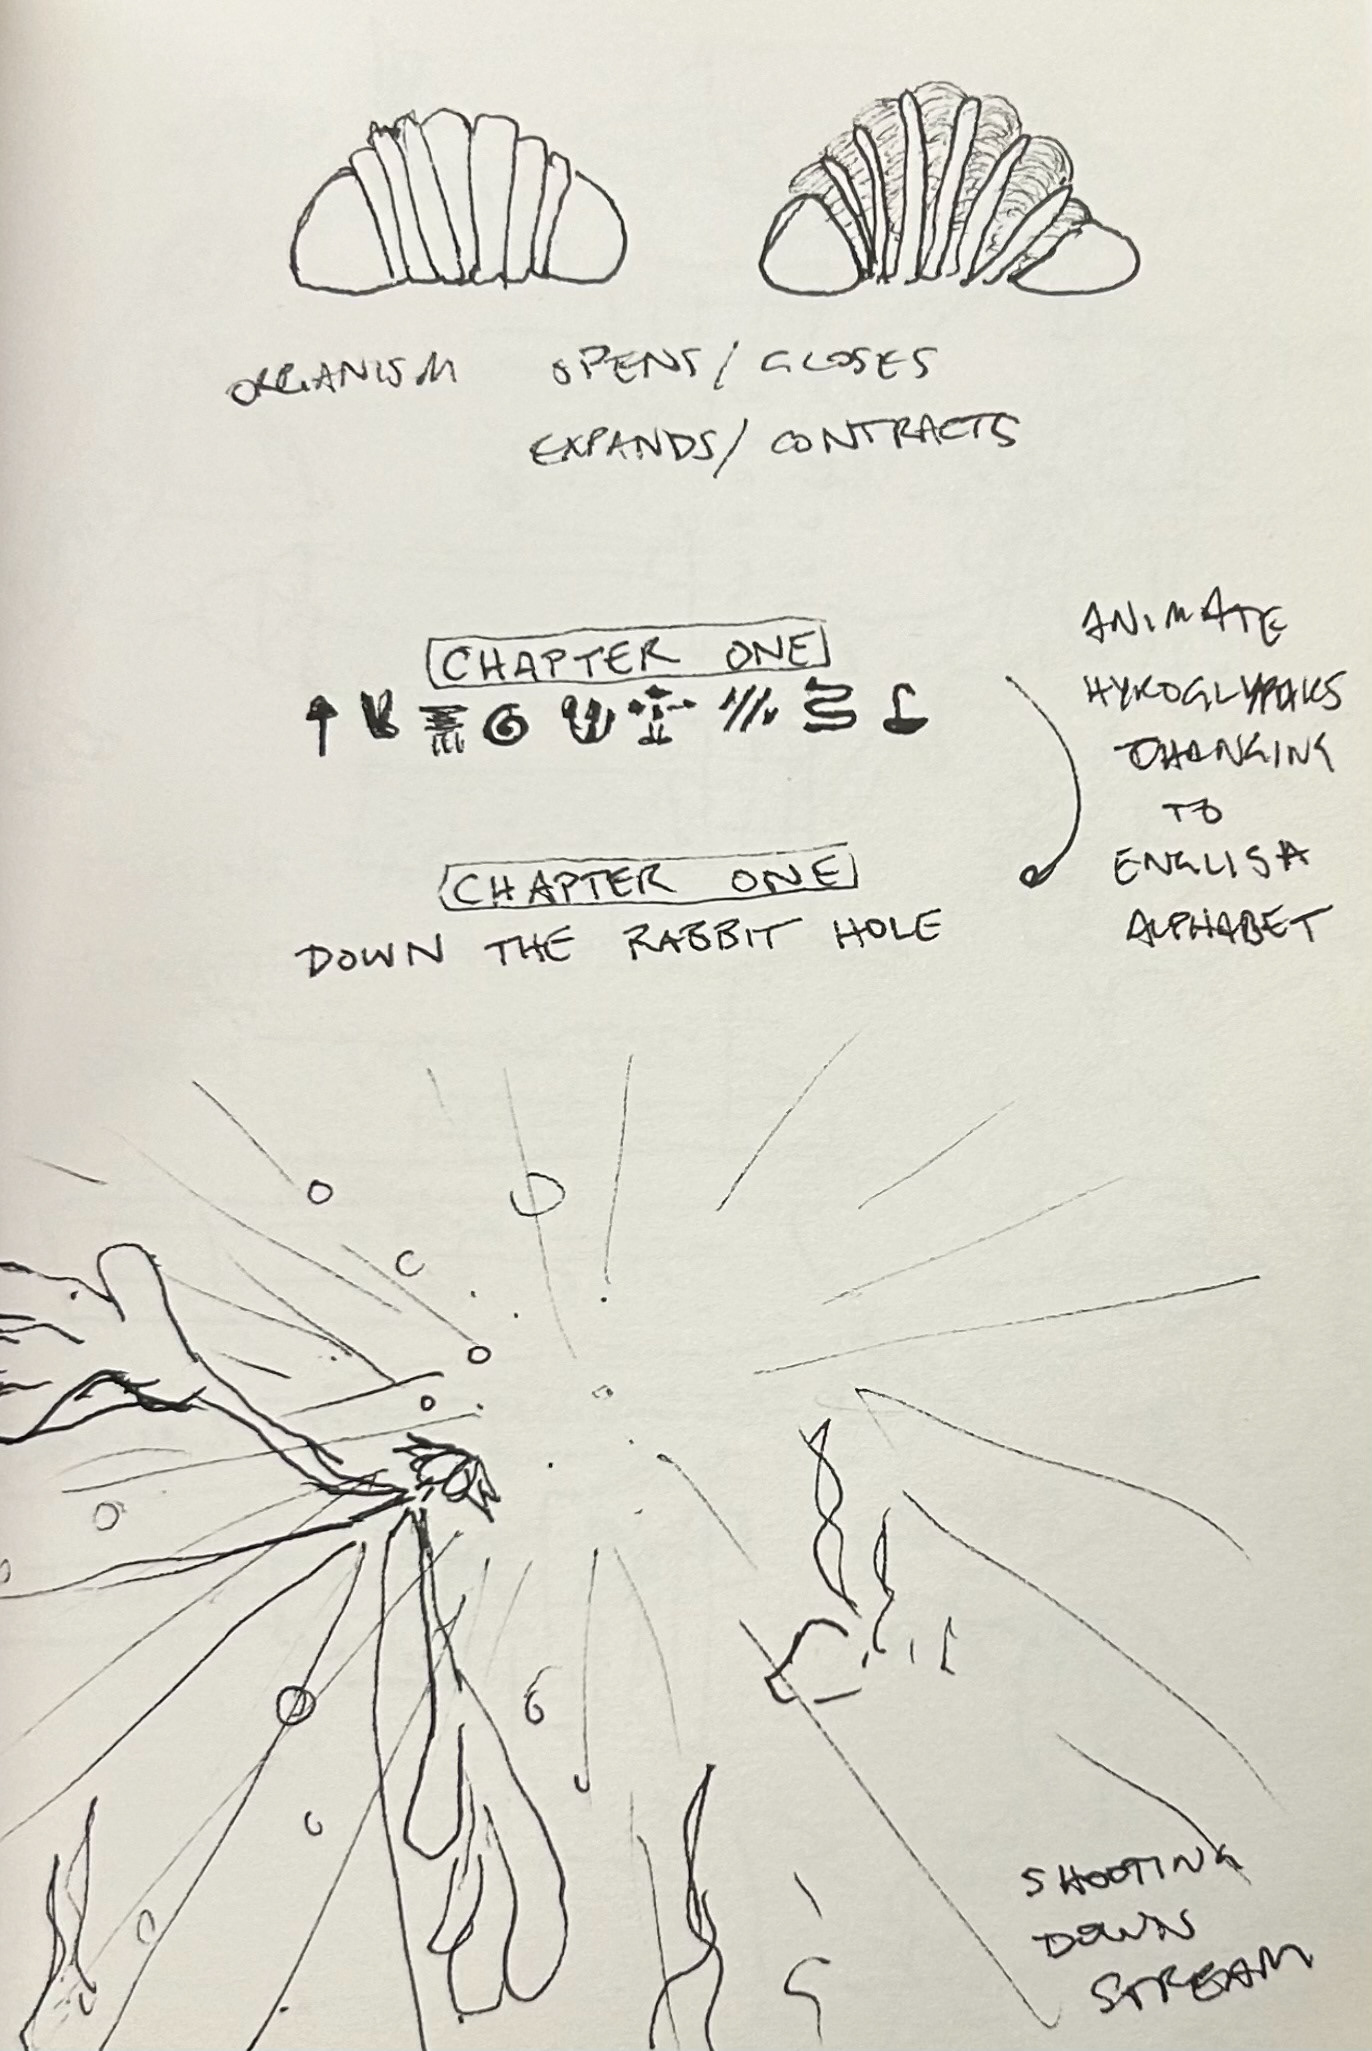 ORGANISM OPENS / CLOSES
EXPANDS / CONTRACTS
CHAPTER ONE
CHAPTER ONE
DOWN THE RABBIT HOLE
ANIMATE
HYROGLYPHKS
CHANGING
TO
ENGLISH
ALPHABET
SHOOTING
DOWN
STREAM